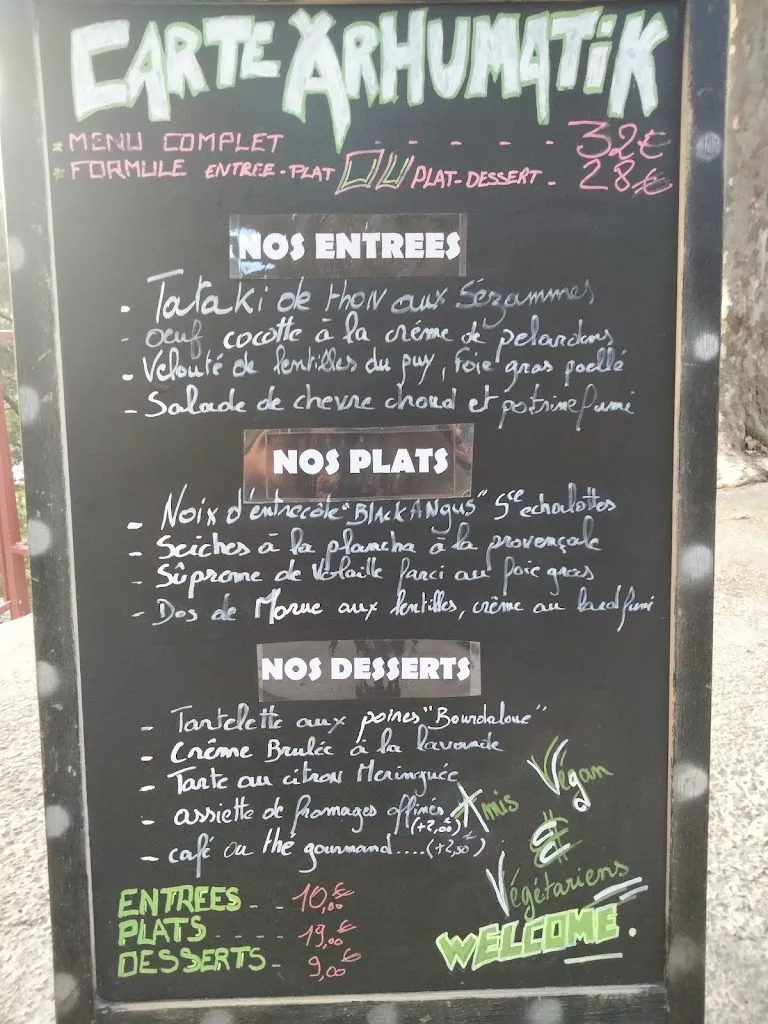 CARTE ARHUMATIK
* MENU COMPLET - - - - - 32€
* FORMULE ENTREE-PLAT OU PLAT-DESSERT - 28€
NOS ENTREES
- Tataki de thon aux Sézammes
- oeuf cocotte à la crème de pelardons
- Velouté de lentilles du puy, foie gras poellé
- Salade de chevre chaud et potrine fumi
NOS PLATS
- Noix d'éntrecôte "BlAck ANgus" Sce echalottes
- Seiches à la plancha à la provençale
- Sûprome de Volaille farci au foie gras
- Dos de Morue aux lentilles, crème au lard fumi
NOS DESSERTS
- Tartelette aux poires "Bourdaloue"
- Crème Brulée à la lavande
- Tarte au citron Meringuée
- assiette de fromages affinés (+2,00€)
- café ou thé gourmand....(+2,50€)
Amis Végan
&
Végétariens
WELCOME.
ENTREES - - 10,00€
PLATS - - - - - 19,00€
DESSERTS - 9,00€